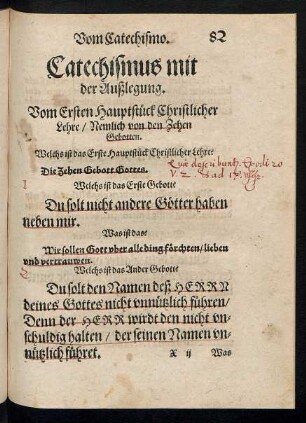 Vom Catechismo. 82
Catechismus mit
der Außlegung.
Vom Ersten Hauptstück Christlicher
Lehre / Nemlich von den Zehen
Gebotten.
Welchs ist das Erste Hauptstück Christlicher Lehre?
Die Zehen Gebott Gottes.
Welchs ist das Erste Gebott?
1
Du solt nicht andere Götter haben
neben mir.
Was ist das?
Wir sollen Gott vber alle ding förchten / lieben
vnd vertrauwen.
Welchs ist das Ander Gebott?
2
Du solt den Namen deß HERRN
deines Gottes nicht vnnützlich führen /
Denn der HERR wirdt den nicht vn-
schuldig halten / der seinen Namen vn-
nützlich führet.
X ij Was